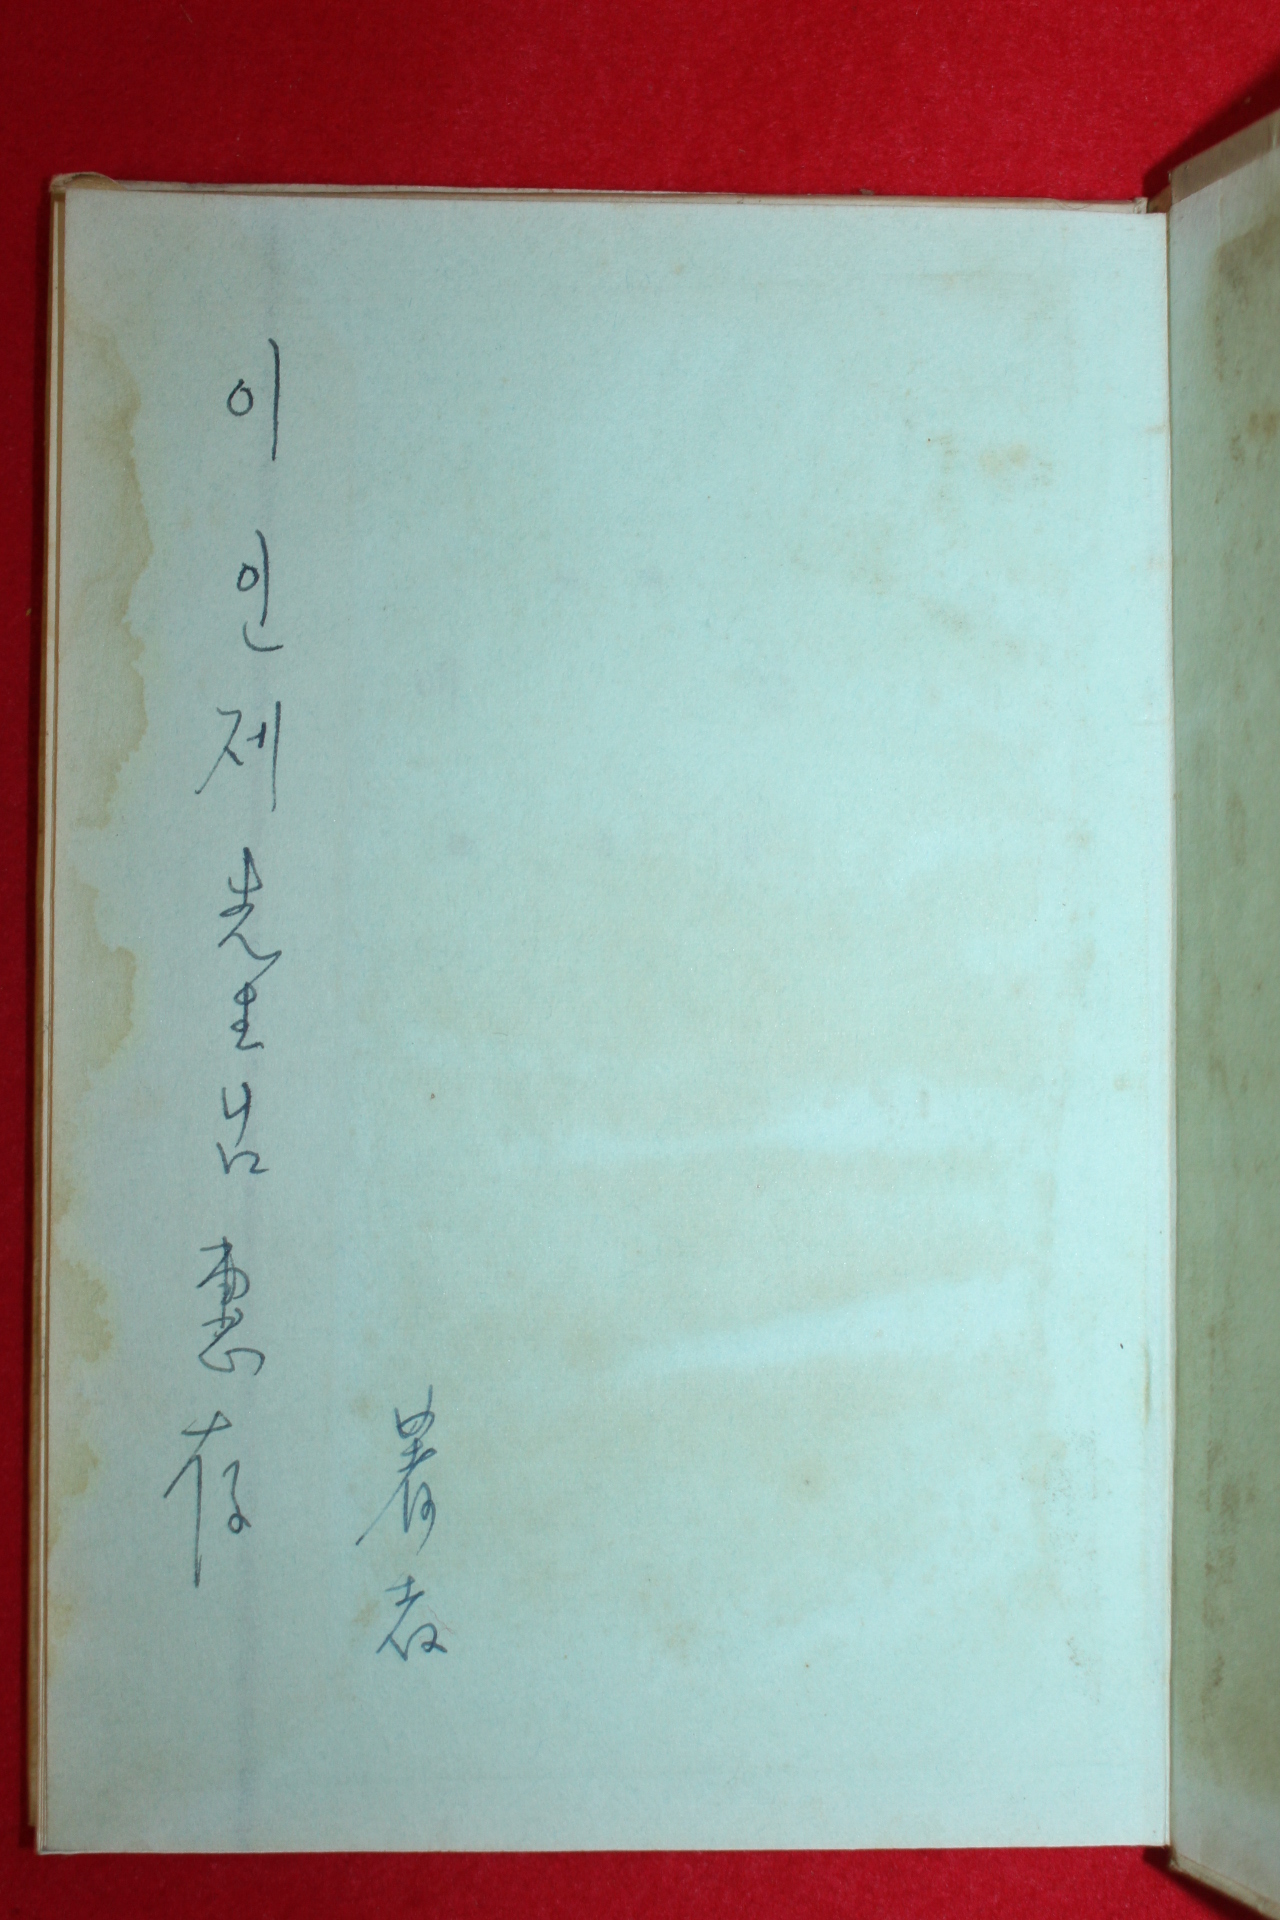 이인제 先生님 惠存
著者